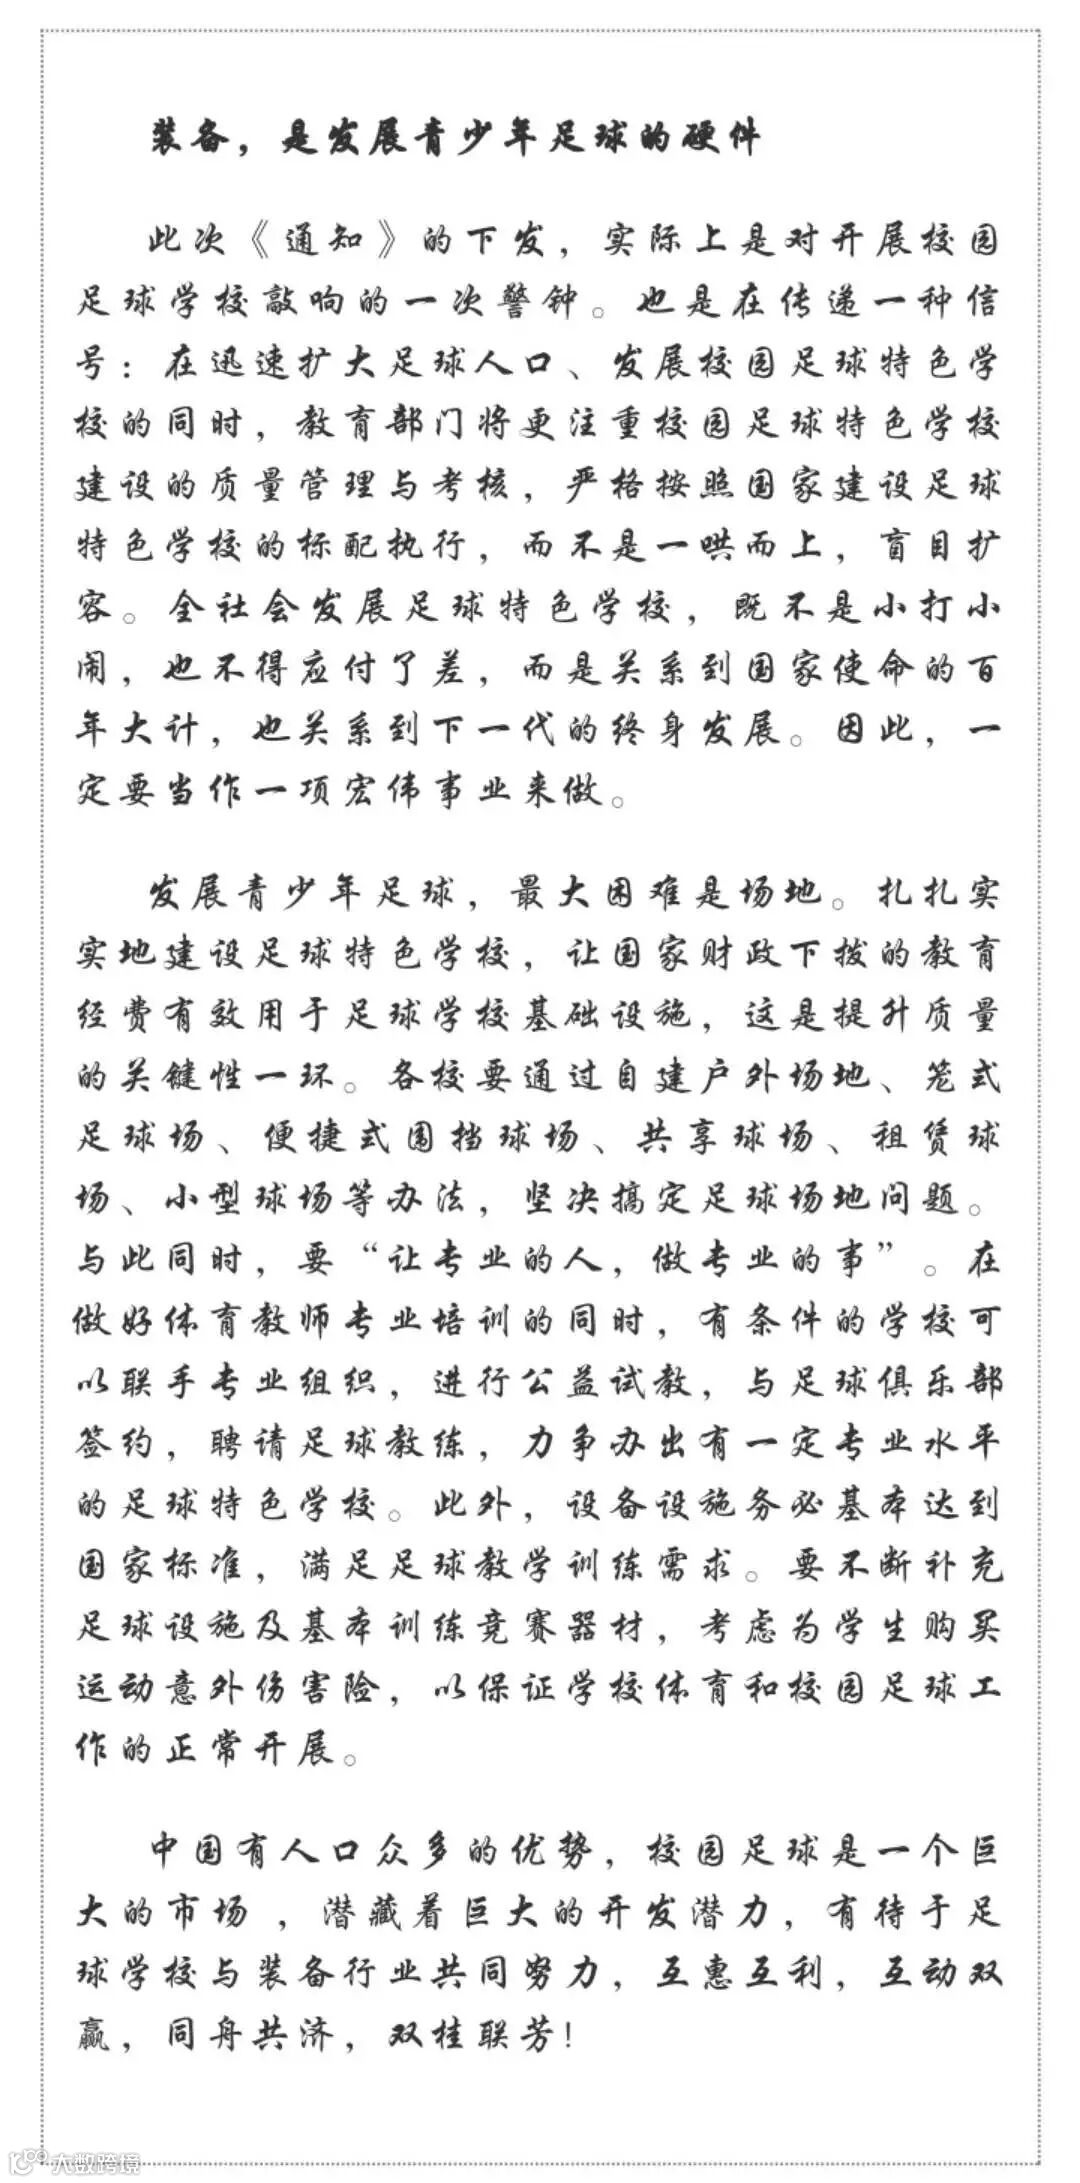 装备，是发展青少年足球的硬件
此次《通知》的下发，实际上是对开展校园
足球学校敲响的一次警钟。也是在传递一种信
号：在迅速扩大足球人口、发展校园足球特色学
校的同时，教育部门将更注重校园足球特色学校
建设的质量管理与考核，严格按照国家建设足球
特色学校的标配执行，而不是一哄而上，盲目扩
容。全社会发展足球特色学校，既不是小打小
闹，也不得应付了差，而是关系到国家使命的百
年大计，也关系到下一代的终身发展。因此，一
定要当作一项宏伟事业来做。
发展青少年足球，最大困难是场地。扎扎实
实地建设足球特色学校，让国家财政下拨的教育
经费有效用于足球学校基础设施，这是提升质量
的关键性一环。各校要通过自建户外场地、笼式
足球场、便捷式围挡球场、共享球场、租赁球
场、小型球场等办法，坚决搞定足球场地问题。
与此同时，要“让专业的人，做专业的事”。在
做好体育教师专业培训的同时，有条件的学校可
以联手专业组织，进行公益试教，与足球俱乐部
签约，聘请足球教练，力争办出有一定专业水平
的足球特色学校。此外，设备设施务必基本达到
国家标准，满足足球教学训练需求。要不断补充
足球设施及基本训练竞赛器材，考虑为学生购买
运动意外伤害险，以保证学校体育和校园足球工
作的正常开展。
中国有人口众多的优势，校园足球是一个巨
大的市场 ，潜藏着巨大的开发潜力，有待于足
球学校与装备行业共同努力，互惠互利，互动双
赢，同舟共济，双桂联芳！
大数跨境